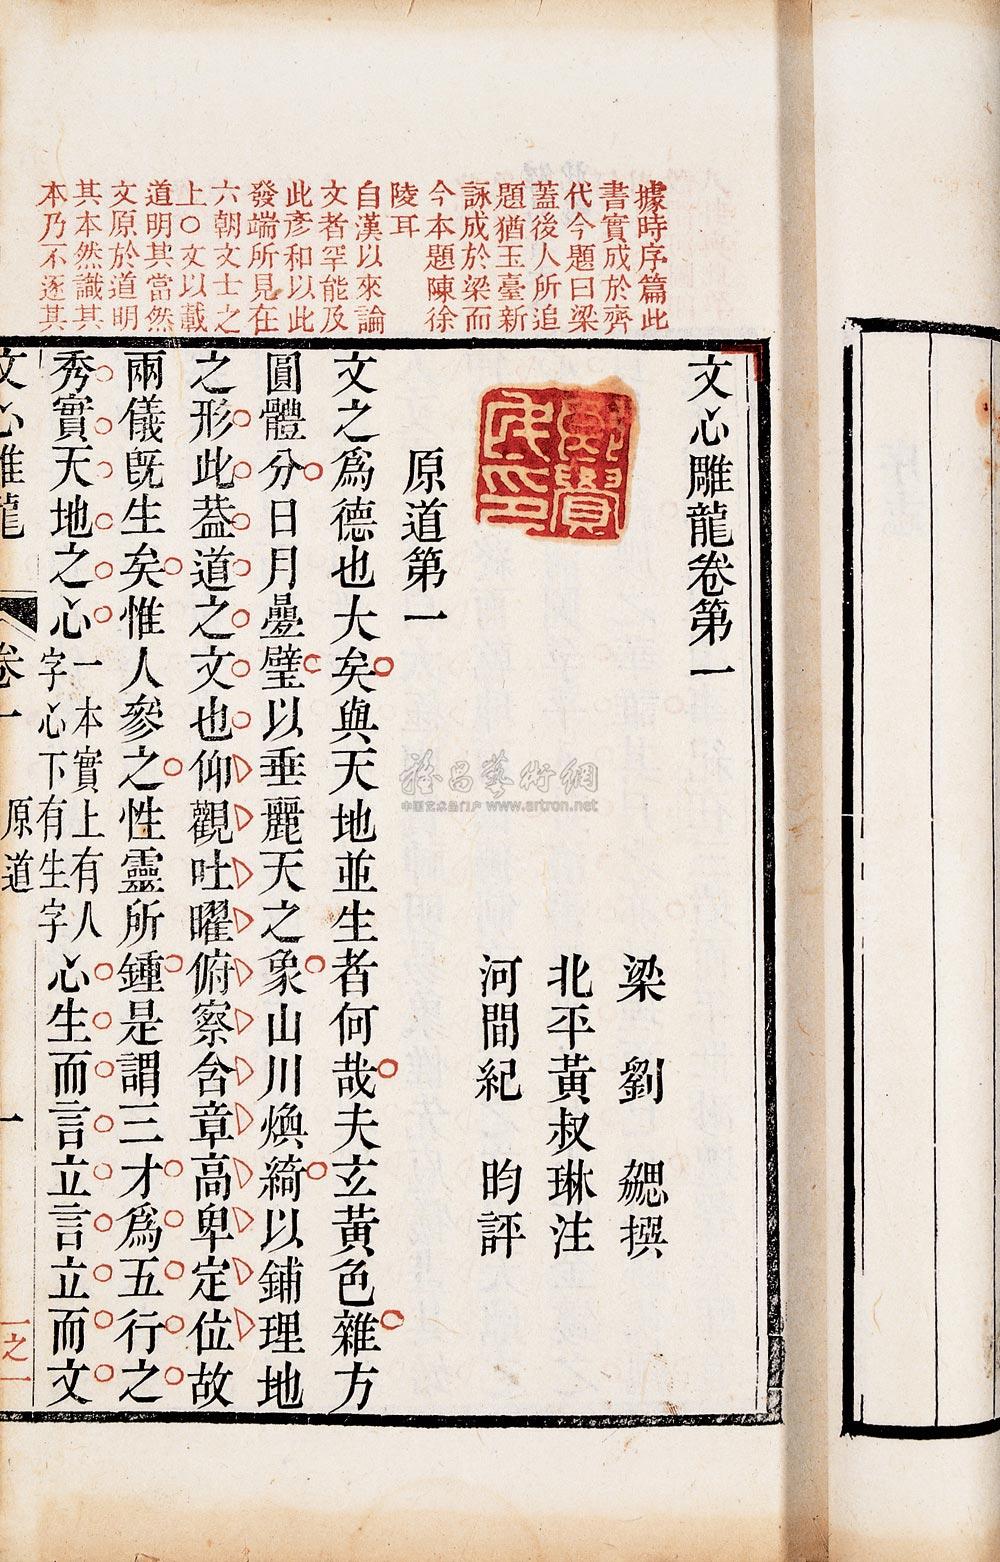 據時序篇此
書實成於齊
代今題曰梁
蓋後人所追
題猶玉臺新
詠成於梁而
今本題陳徐
陵耳
自漢以來論
文者罕能及
此彥和以此
發端所見在
六朝文士之
上〇文以載
道明其當然
文原於道明
其本然識其
本乃不逐其
文心雕龍卷第一
梁 劉 勰 撰
北平黃叔琳注
河間紀 昀評
原道第一
文之爲德也大矣與天地並生者何哉夫玄黃色雜方
圓體分日月疊璧以垂麗天之象山川煥綺以鋪理地
之形此葢道之文也仰觀吐曜俯察含章高卑定位故
兩儀旣生矣惟人參之性靈所鍾是謂三才爲五行之
秀實天地之心一本實上有人字心下有生字心生而言立言立而文
文心雕龍 卷一 原道 一
一之一
雅昌藝術網
中国艺术品门户 www.artron.net